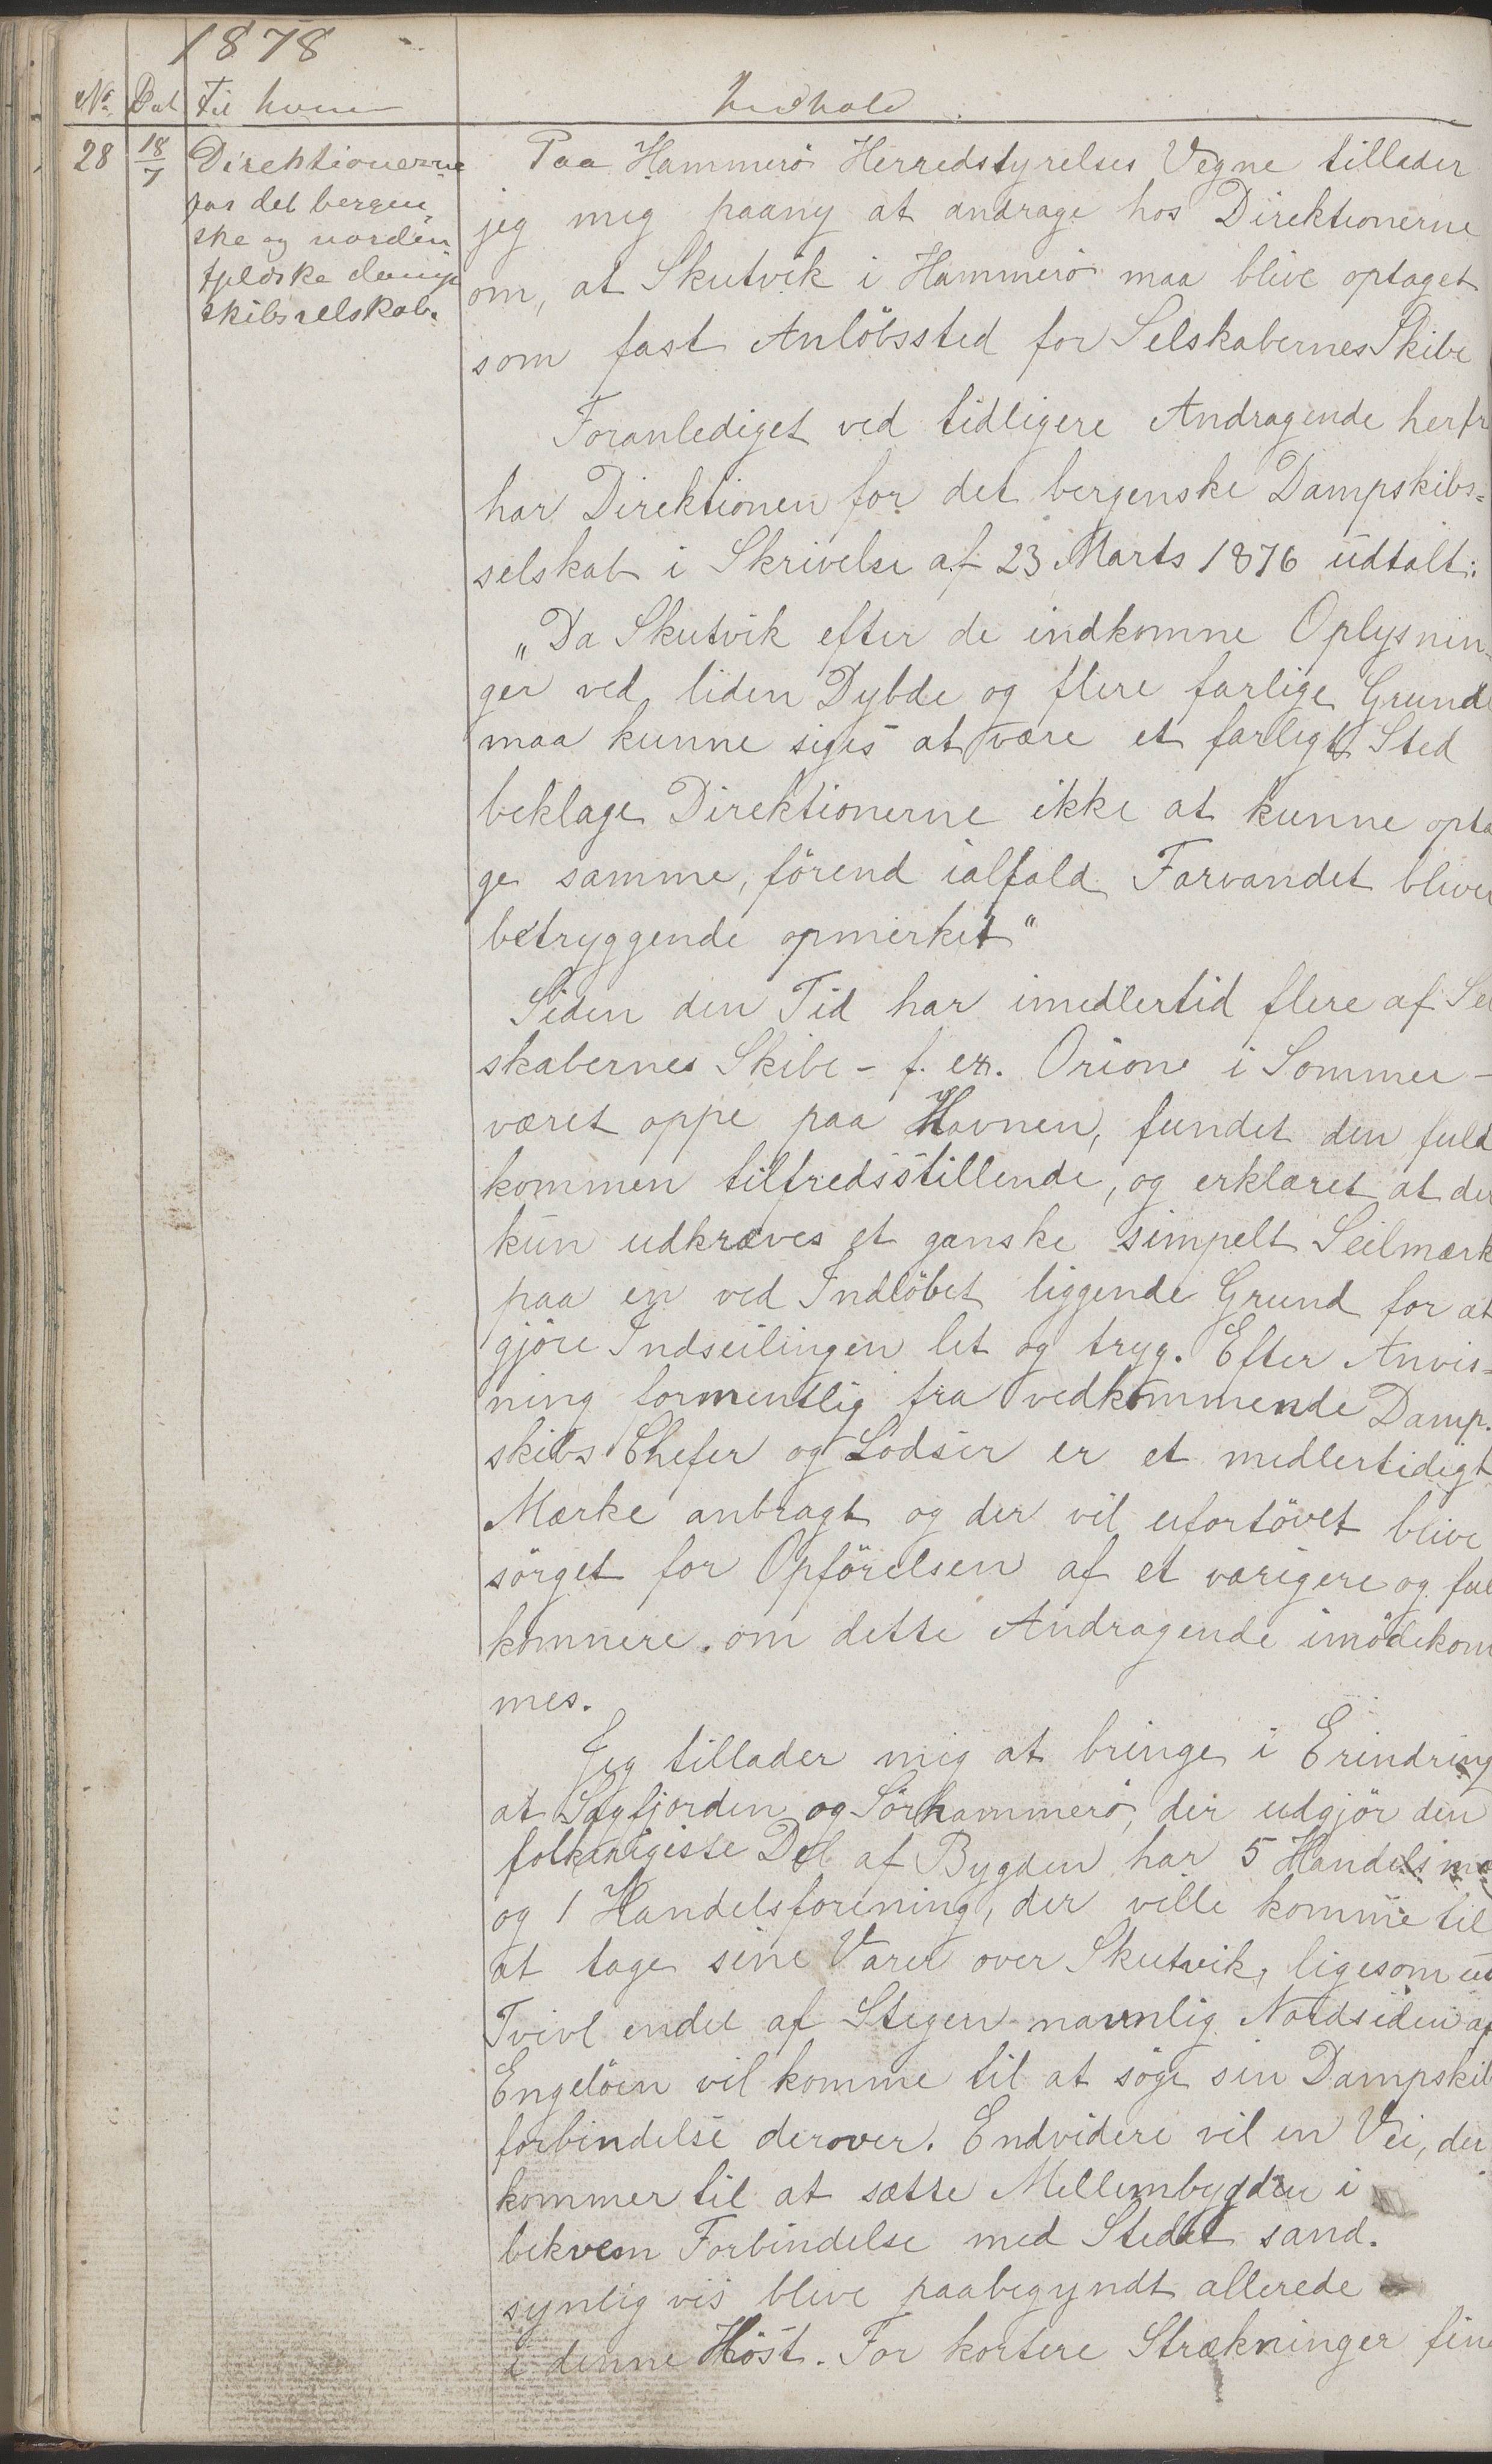 1878
No. Dat Til hvem Indhold.
28 18/7 Direktionerne
for det bergen
ske og norden
fjeldske damp
skibsselskab.
Paa Hammerö Herredstyrelses Vegne tillader
jeg mig paany at andrage hos Direktionerne
om, at Skutvik i Hammerö maa blive optaget
som fast Anlöbssted for Selskabernes Skibe
Foranlediget ved tidligere Andragende herfr
har Direktionen for det bergenske Dampskibs=
selskab i Skrivelse af 23 Marts 1876 udtalt:
„Da Skutvik efter de indkomne Oplysnin-
ger ved liden Dybde og flere farlige Grund
maa kunne siges at være et farligt Sted
beklage Direktionerne ikke at kunne opta
ge samme, förend ialfald Farvandet bliver
betryggende opmerket"
Siden den Tid har imedlertid flere af Sel
skabernes Skibe - f. ex. Orion i Sommer -
været oppe paa Havnen, fundet den fuld
kommen tilfredsstillende, og erklæret at der
kun udkræves et ganske simpelt Seilmærk
paa en ved Indlöbet liggende Grund for at
gjöre Indseilingen let og tryg. Efter Anvis=
ning formentlig fra vedkommende Damp.
skibs Chefer og Lodser er et medlertidigt
Mærke anbragt og der vil ufortövet blive
sörget for Opförelsen af et varigere og ful
komnere, om dette Andragende imödekom
mes.
Jeg tillader mig at bringe i Erindring
at Sagfjorden og Sörhammerö, der udgjör den
folkerigeste Del af Bygden har 5 Handelsmæ
og 1 Handelsforening, der ville komme til
at tage sine Varer over Skutvik, ligesom ud
Tvivl endel af Stegen navnlig Nordsiden af
Engelöen vil komme til at söge sin Dampskib
forbindelse derover. Endvidere vil en Vei, der
kommer til at sætte Mellembygden i
bekvem Forbindelse med Stedet sand.
synlig vis blive paabegyndt allerede
i denne Höst. For kortere Strækninger fin